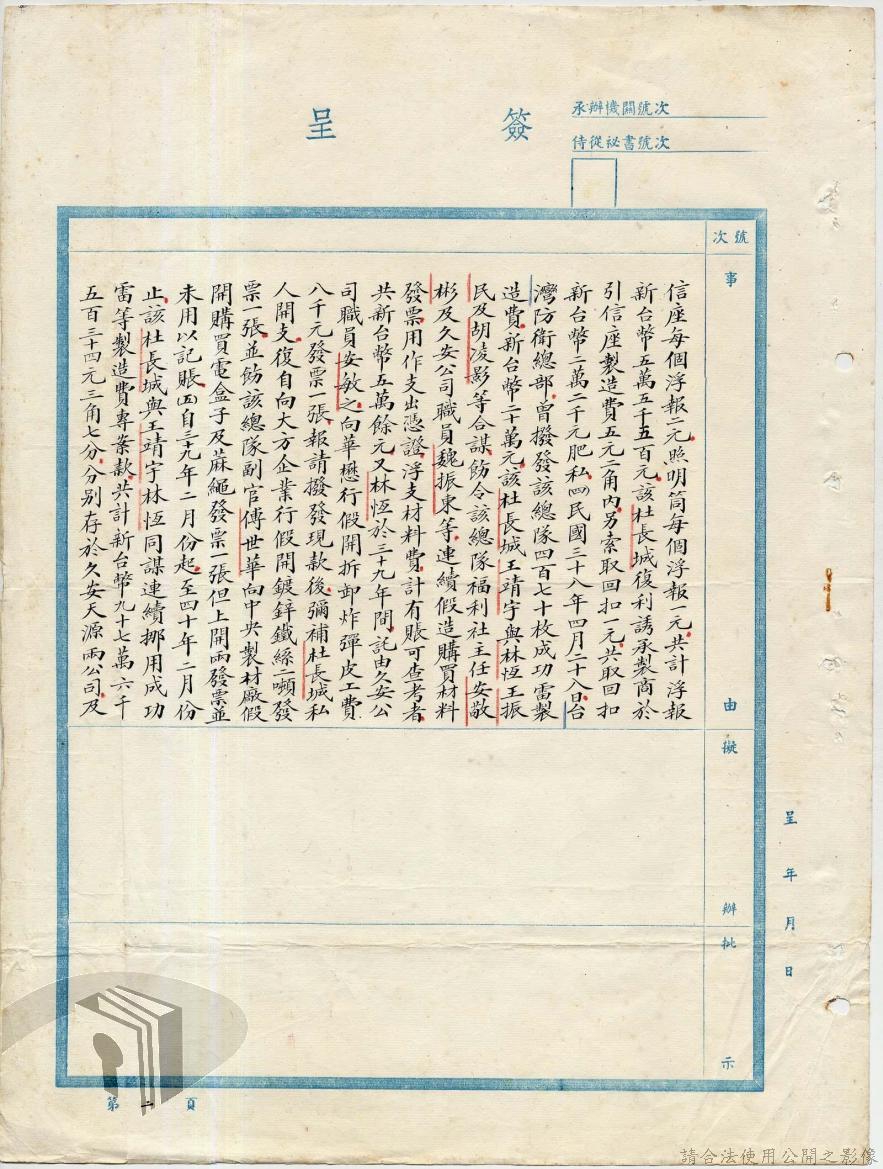 承辦機關號次
侍從祕書號次
簽呈
號次
事由
擬辦
批示
信座每個浮報二元照明筒每個浮報一元共計浮報
新台幣五萬五千五百元該杜長城復利誘承製商於
引信座製造費五元二角內另索取回扣一元共取回扣
新台幣二萬二千元肥私㈣民國三十八年四月二十八日台
灣防衛總部曾撥發該總隊四百七十枚成功雷製
造費新台幣二十萬元該杜長城王靖宇與林恆王振
民及胡凌影等合謀飭令該總隊福利社主任安敬
彬及久安公司職員魏振東等連續假造購買材料
發票用作支出憑證浮支材料費計有賬可查考者
共新台幣五萬餘元又林恆於三十九年間託由久安公
司職員安敏之向華懋行假開折卸炸彈皮工費
八千元發票一張報請撥發現款後彌補杜長城私
人開支復自向大方企業行假開鍍鋅鐵絲二噸發
票一張並飭該總隊副官傅世華向中央製材廠假
開購買電盒子及蔴繩發票一張但上開兩發票並
未用以記賬㈤自三九年二月份起至四十年二月份
止該杜長城與王靖宇林恆同謀連續挪用成功
雷等製造費專案款共計新台幣九十七萬六千
五百三十四元三角七分分別存於久安天源兩公司及
呈 年 月 日
第二頁
請合法使用公開之影像